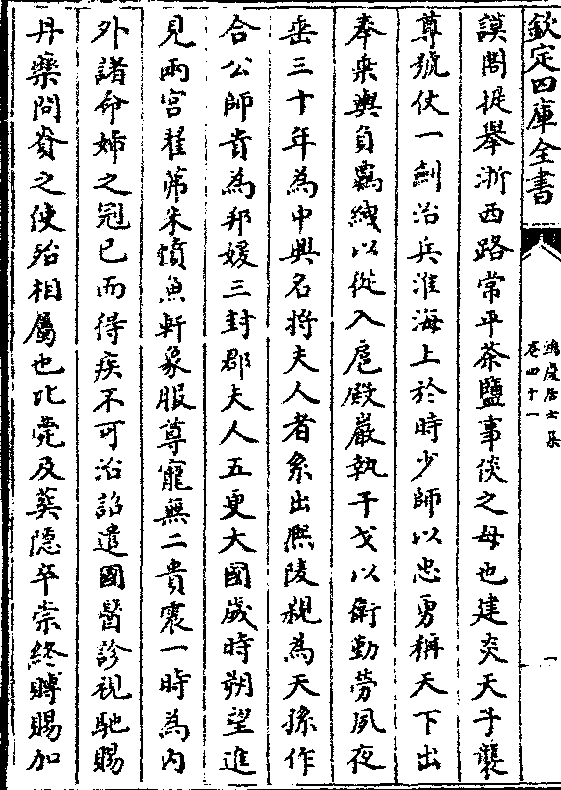 欽定四庫全書
鴻慶居士集
卷四十一
一
謨閣提舉浙西路常平茶鹽事倓之母也建炎天子襲
尊號仗一劍治兵淮海上於時少師以忠勇稱天下出
奉乘輿負羈絏以從入扈殿巖執干戈以衛勤勞夙夜
垂三十年為中興名將夫人者系出熙陵親為天孫作
合公師貴為邦媛三封郡夫人五更大國歲時朔望進
見兩宮翟茀朱幩魚軒象服尊寵無二貴震一時為内
外諸命婦之冠已而得疾不可治詔遣國醫診視馳賜
丹藥問賚之使殆相屬也比薨及葬隱卒崇終賻賜加